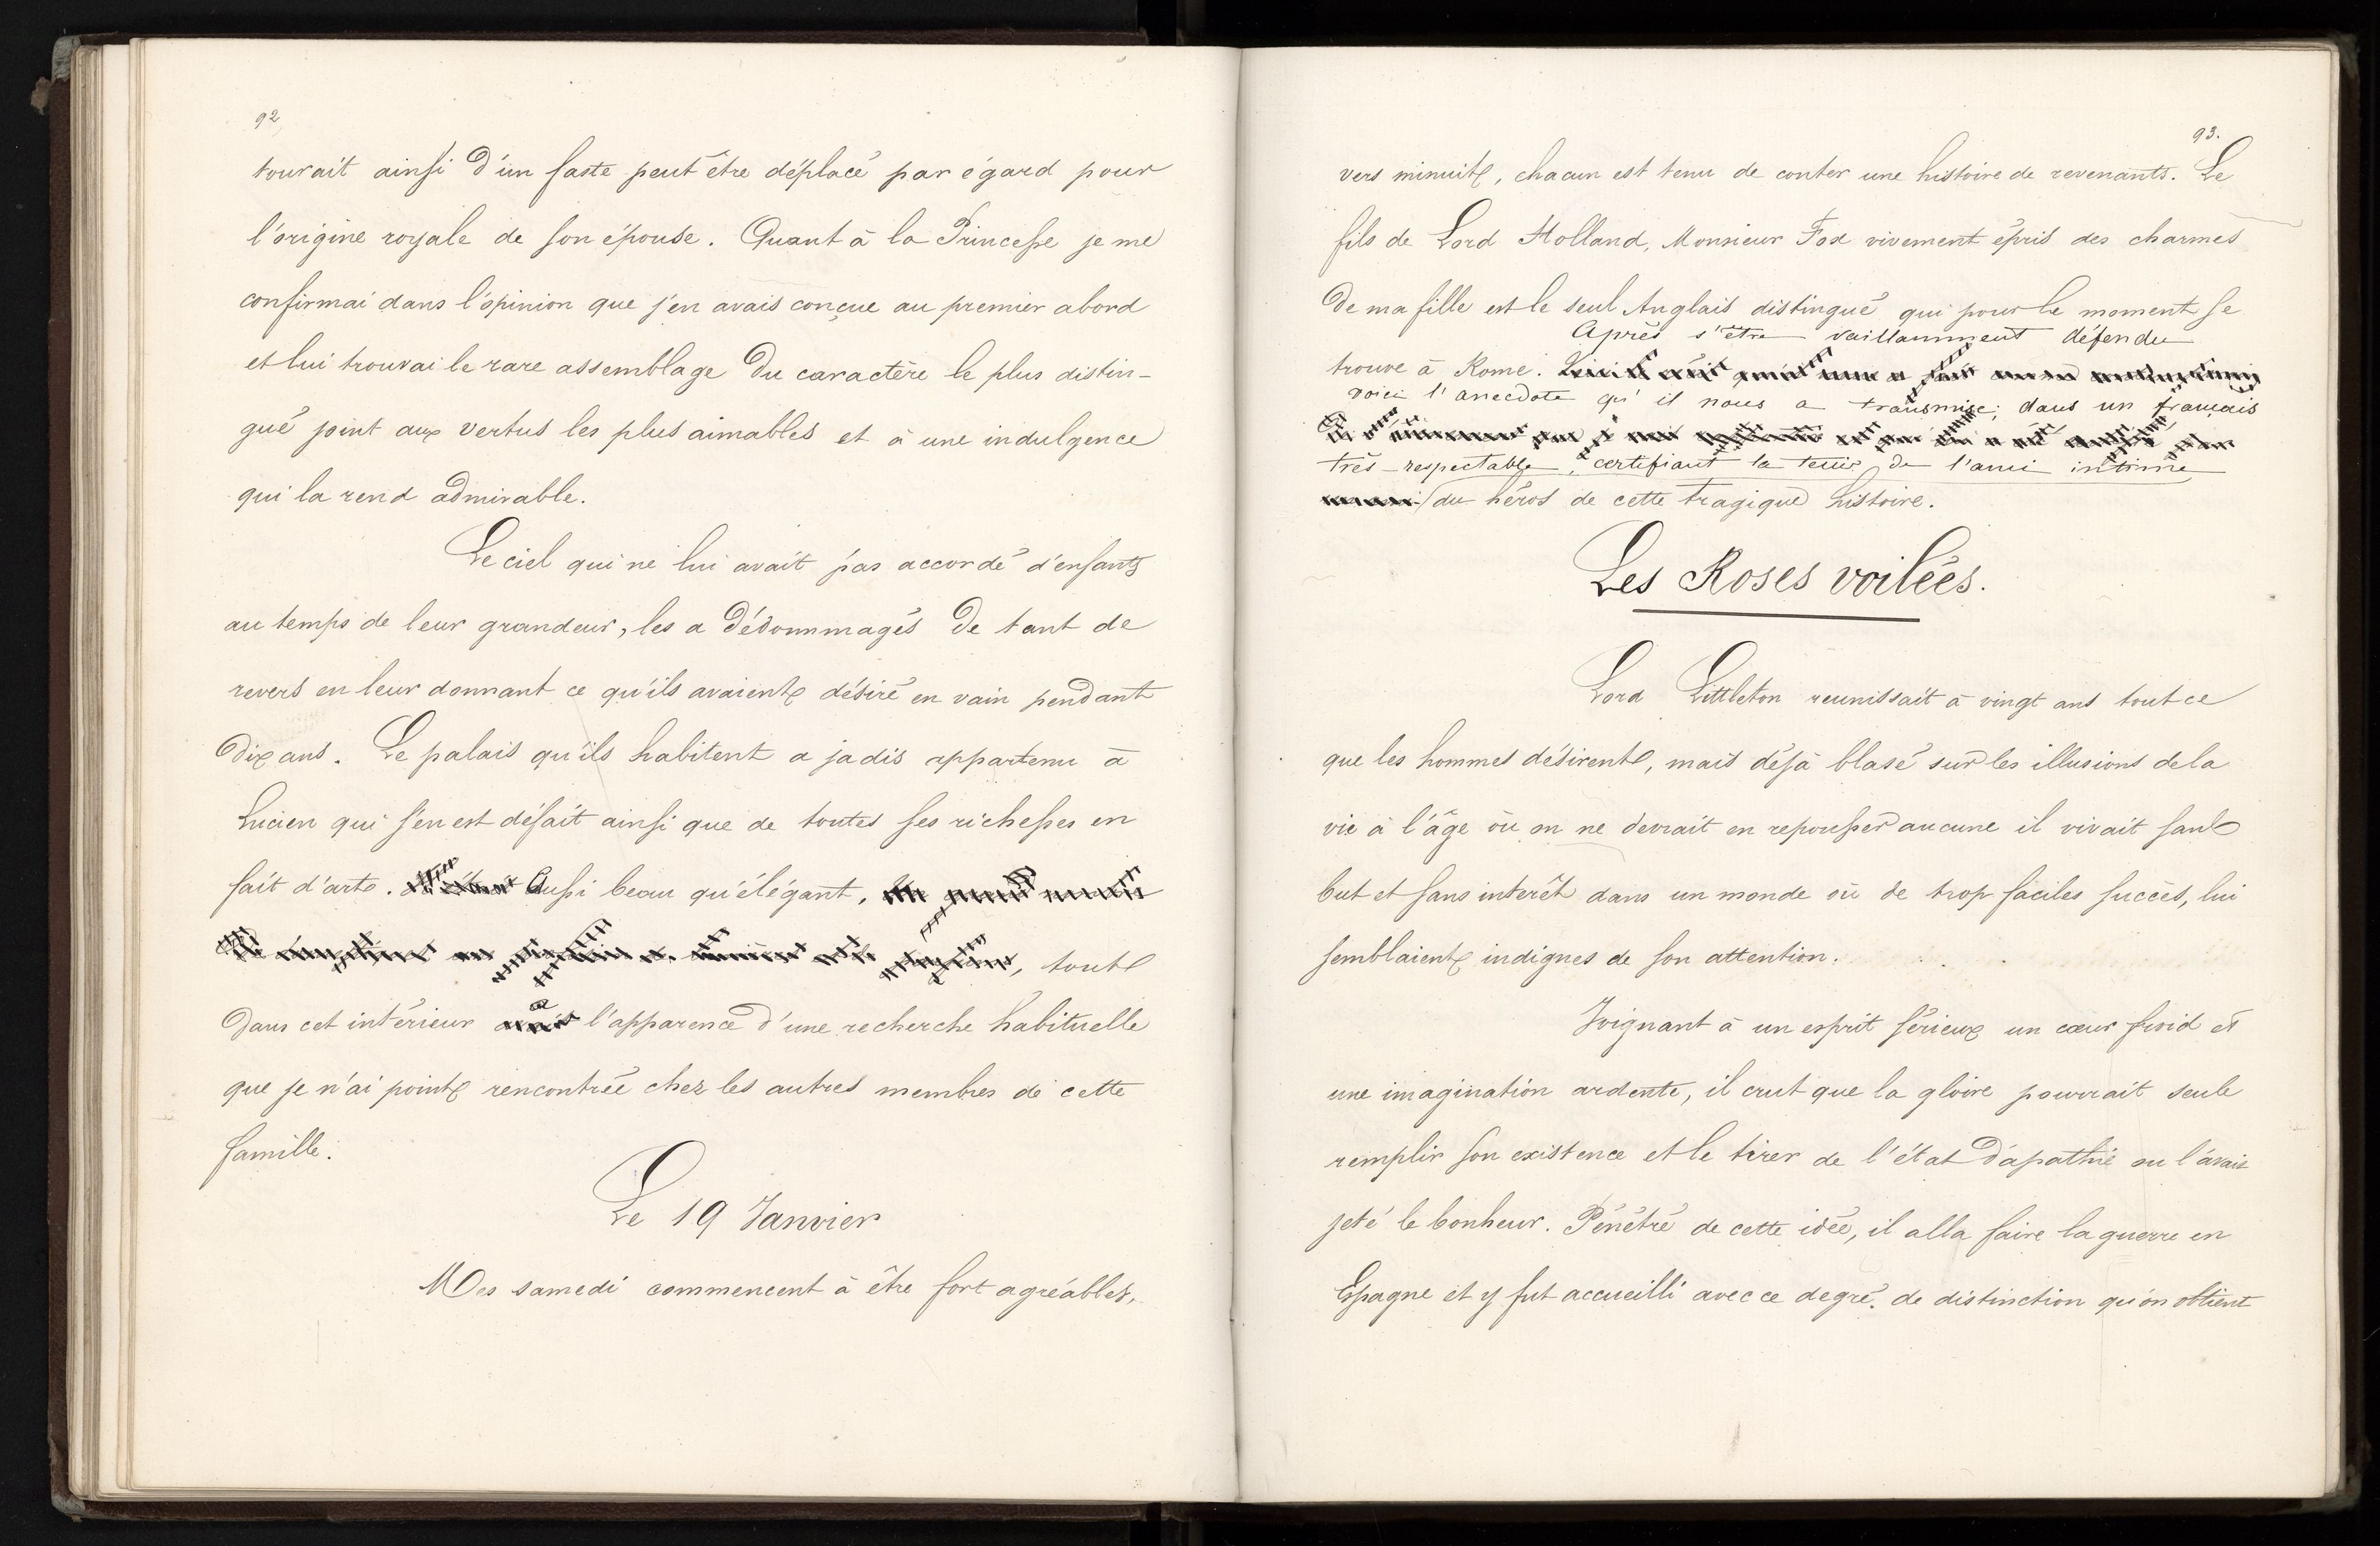 92
tourait ainsi d'un faste peut être déplacé par égard pour
l'origine royale de son épouse. Quant à la Princesse je me
confirmai dans l'opinion que j'en avais conçue au premier abord
et lui trouvai le rare assemblage du caractère le plus distin-
gué joint aux vertus les plus aimables et à une indulgence
qui la rend admirable.
Le ciel qui ne lui avait pas accordé d'enfants
au temps de leur grandeur, les a dédommagés de tant de
revers en leur donnant ce qu'ils avaient désiré en vain pendant
dix ans. Le palais qu'ils habitent a jadis appartenu à
Lucien qui s'en est défait ainsi que de toutes ses richesses en
fait d'arts. Aussi beau qu'élégant,
, tout
dans cet intérieur a l'apparence d'une recherche habituelle
que je n'ai point rencontrée chez les autres membres de cette
famille.
Le 19 Janvier
Mes samedi commencent à être fort agréables,
93.
vers minuit, chacun est tenu de conter une histoire de revenants. Le
fils de Lord Holland, Monsieur Fox vivement épris des charmes
de ma fille est le seul Anglais distingué qui pour le moment se
Après s'être vaillamment défendu
trouve à Rome.
voici l'anecdote qu'il nous a transmise, dans un français
très-respectable, certifiant la tenir de l'ami intime
du héros de cette tragique histoire.
Les Roses voilées.
Lord Littleton reunissait à vingt ans tout ce
que les hommes désirent, mais déjà blasé sur les illusions de la
vie à l'âge où on ne devrait en repousser aucune il vivait sans
but et sans interêt dans un monde où de trop faciles succès, lui
semblaient indignes de son attention.
Joignant à un esprit sérieux un cœur froid et
une imagination ardente, il crut que la gloire pourrait seule
remplir son existence et le tirer de l'état d'apathie ou l'avait
jeté le bonheur. Pénétré de cette idée, il alla faire la guerre en
Espagne et y fut accueilli avec ce degré de distinction qu'on obtient